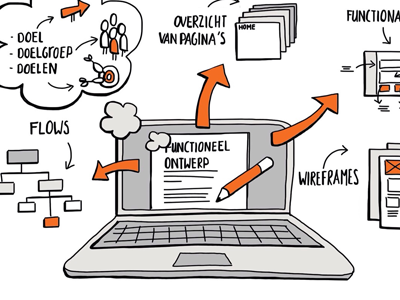 - DOEL
- DOELGROEP
- DOELEN
OVERZICHT
VAN PAGINA'S
HOME
FUNCTIONA
FLOWS
FUNCTIONEEL
ONTWERP
WIREFRAMES